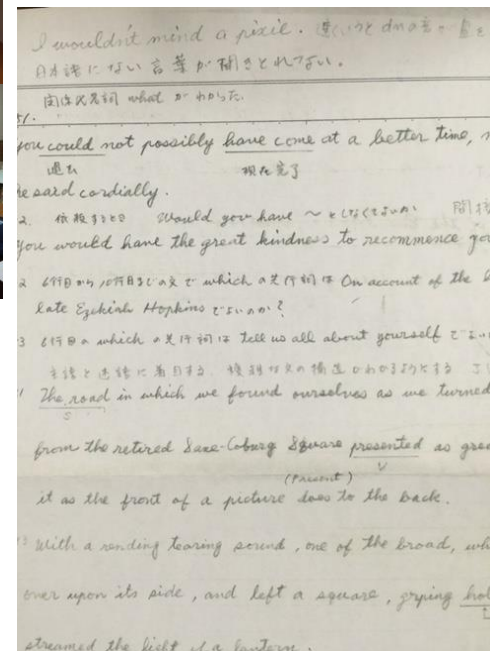 I wouldn't mind a pixil. 速くいうと dnの音
日本語にない言葉が聞きとれてない。
関係代名詞 what がわかった.
51.
you could not possibly have come at a better time,
過去 現在完了
he said cordially.
2. 依頼するとき Would you have ~ 間接
you would have the great kindness to recommence
2 6行目から10行目までの文で which の先行詞は On account of the
late Ezekiah Hopkins でよいのか?
3 6行目の which の先行詞は tell us all about yourself
主語と述語に着目する. 複雑な文の構造がわかるようにする
The road in which we found ourselves as we turned
S
from the retired Saxe-Coburg Square presented as
V
(Present)
it as the front of a picture does to the back.
With a rending tearing sound, one of the broad,
over upon its side, and left a square, gaping
streamed the light of a lantern.